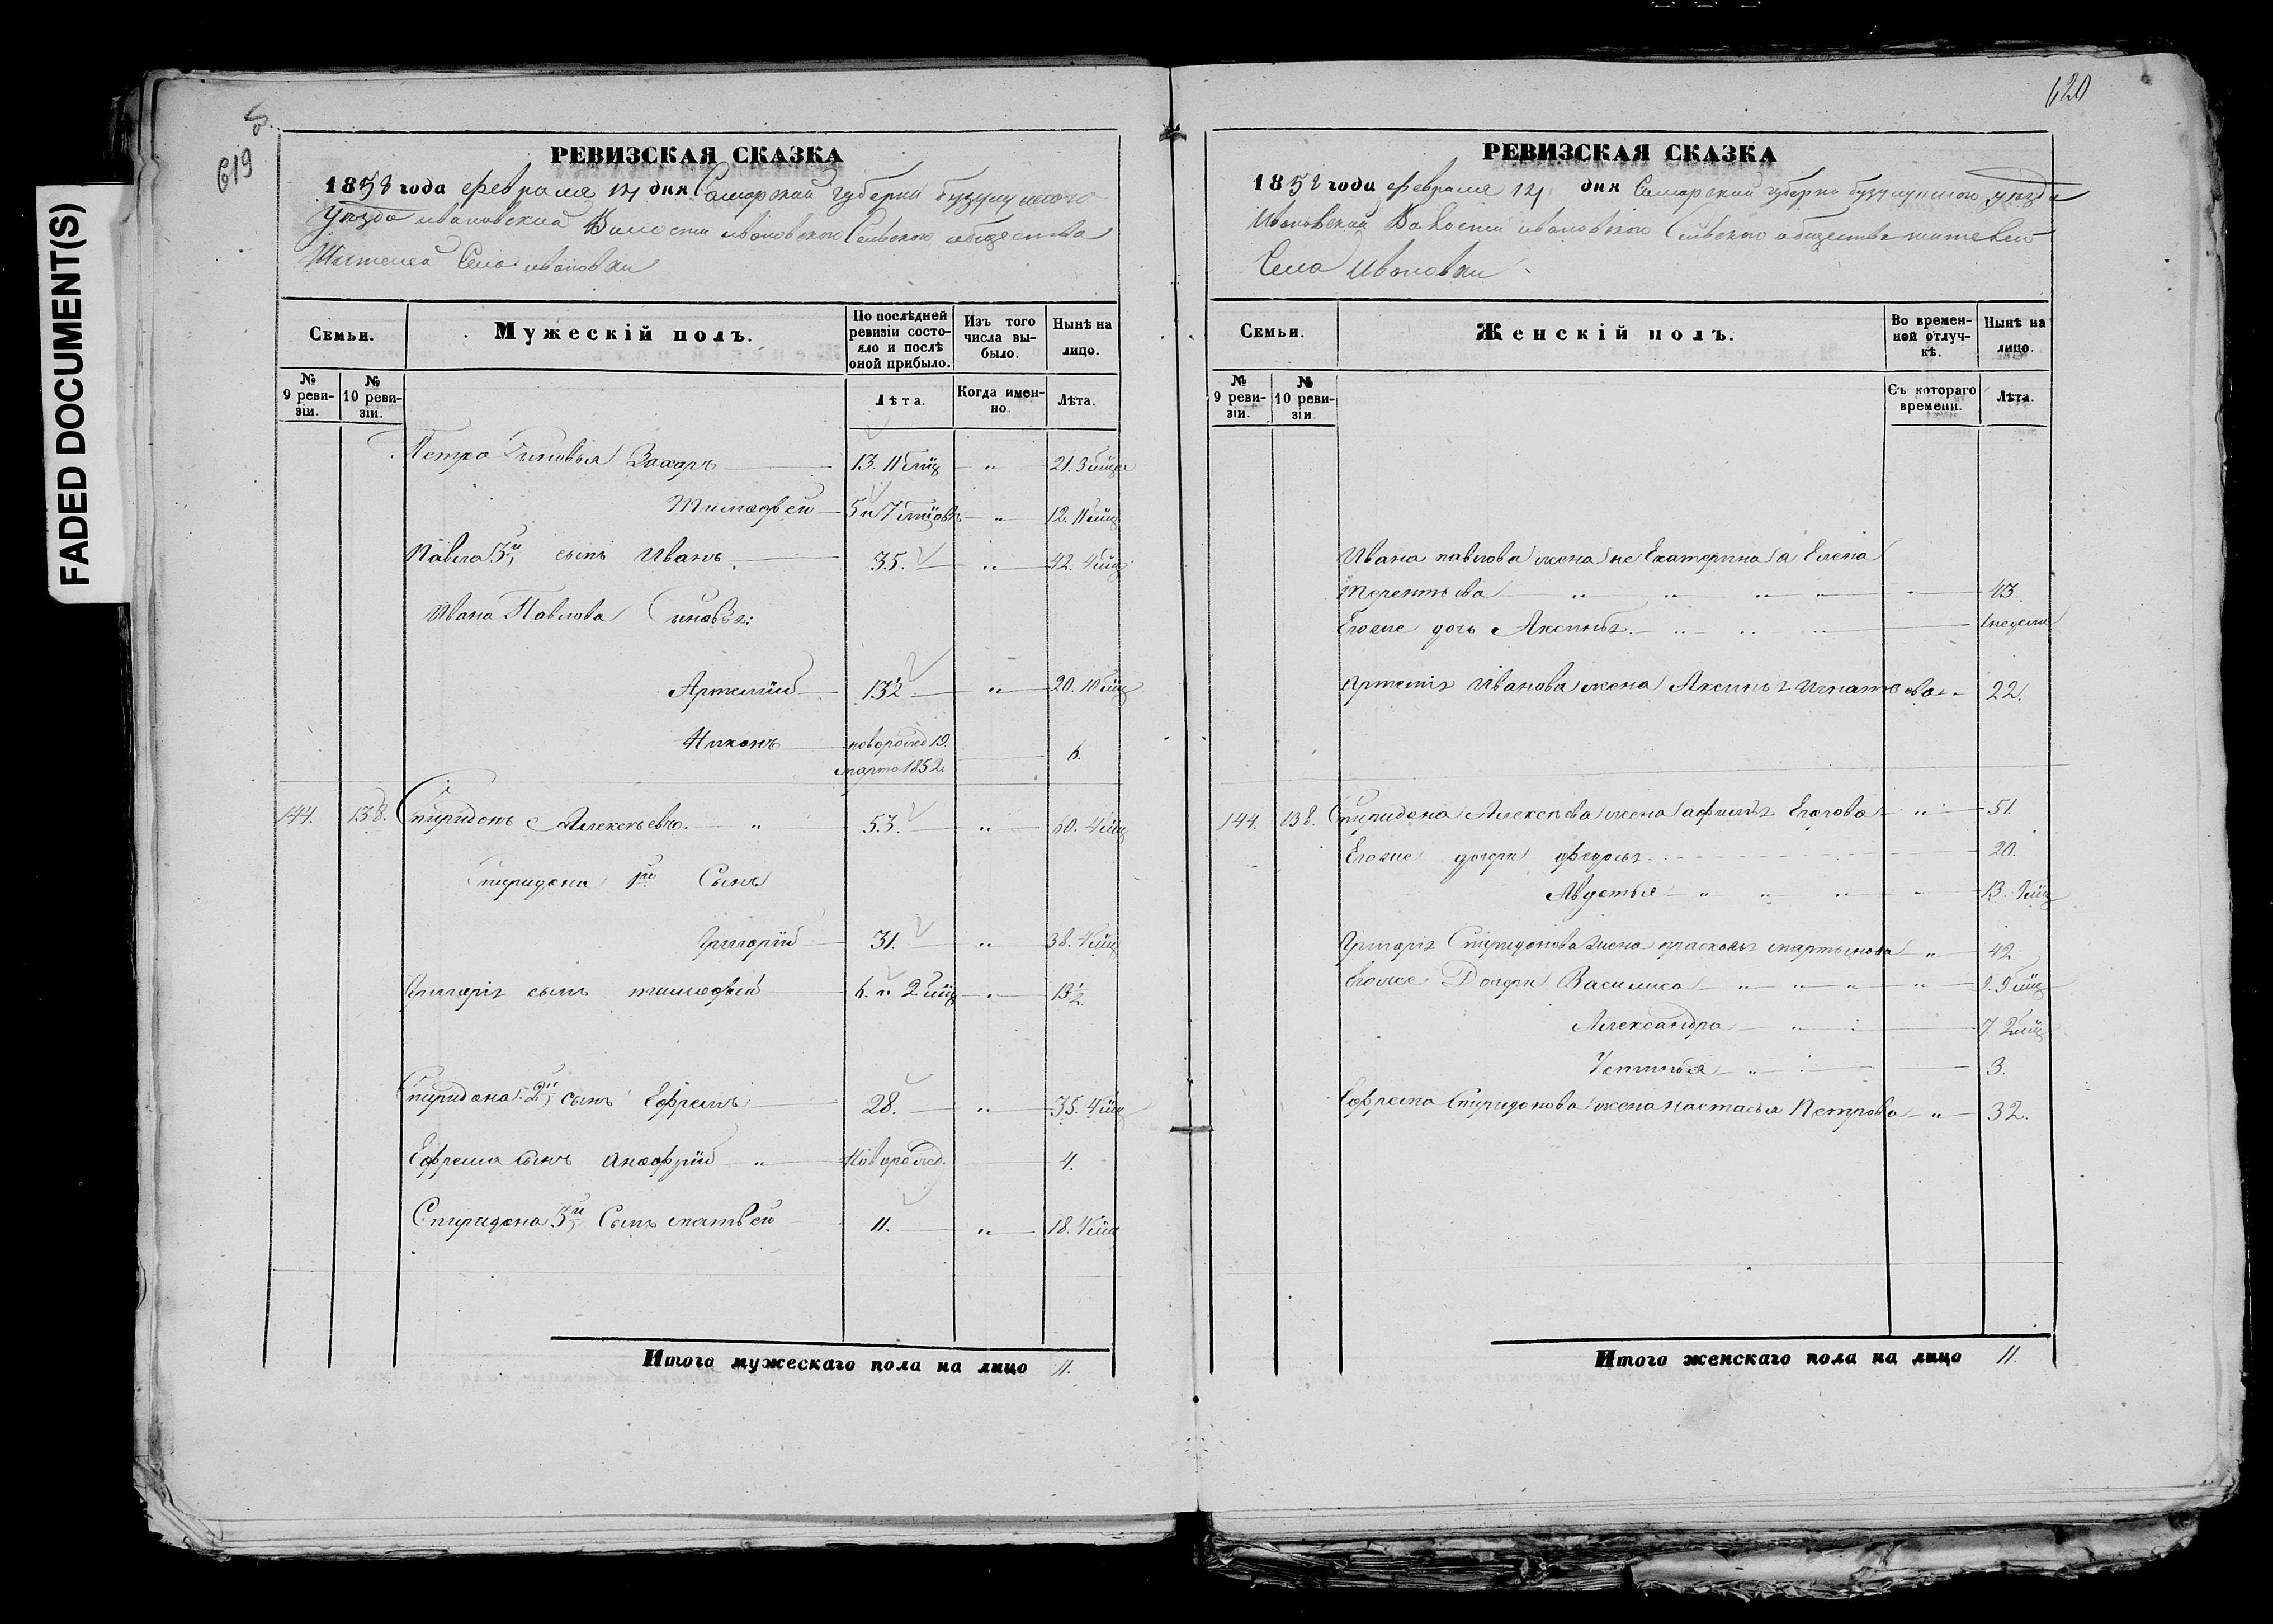 FADED DOCUMENT(S)
619
РЕВИЗСКАЯ СКАЗКА
1858 года февраля 14 дня Самарской губернии бузулуцкого
уезда ивановский Волости ивановского Сельского общества
Жителей Села ивановки
Семьи.
Мужескій полъ.
По послѣдней ревизіи состояло и послѣ оной прибыло.
Изъ того числа выбыло.
Нынѣ на лицо.
№ 9 ревизіи.
№ 10 ревизіи.
Лѣта.
Когда именно.
Лѣта.
Петра Сыновья Захаръ 13. 11 мцъ " 21. 3 мца
Тимофей 5 и 7 мцовъ " 12. 11 мцъ
Павла 3й сынъ Иванъ 35. " 42. 4 мцъ
Ивана Павлова Сыновья:
Артемий 13½ " 20. 10 мцъ
Никонъ новорожд 19. марта 1852 6.
144. 138. Спиридонъ Алексѣевъ. " 53. " 60. 4 мцъ
Спиридона 1й Сынъ
Григорій 31. " 38. 4 мцъ
Григорія сынъ тимофей 6. и 2 мцъ " 13½
Спиридона 2й сынъ Ефремъ 28. " 35. 4 мцъ
Ефрема сынъ Анофрій " Новорожд. 4.
Спиридона 3й Сынъ матвей 11. " 18. 4 мцъ
Итого мужескаго пола на лицо 11.
620
РЕВИЗСКАЯ СКАЗКА
1858 года февраля 14 дня Самарской губерни бузулуцкого уезда
Ивановской Волости ивановского Сельского общества жителей
Села Ивановки
Семьи.
Женскій полъ.
Во временной отлучкѣ.
Нынѣ на лицо.
№ 9 ревизіи.
№ 10 ревизіи.
Съ котораго времени.
Лѣта.
Ивана павлова жена не Екатерина а Елена
Терентьева " " " " 43.
Егоже дочь Аксинья " " " недели
Артемія Иванова жена Аксинья Игнатьева " 22.
144. 138. Спиридона Алексѣева жена афимья Егорова " 51.
Егоже дочери федосья 20.
Авдотья " " " 13. мцъ
Григорія Спиридонова жена прасковья мартынова " 42
Егоже Дочери Василиса " " " " 9. 9 мцъ
Александра " 7. 2 мцъ
Устинья " 3.
Ефрема Спиридонова жена настасья Петрова " 32.
Итого женскаго пола на лицо 11.